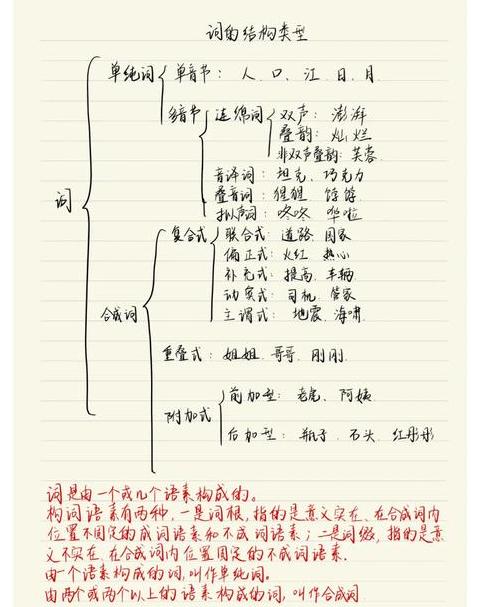 词的结构类型
词
单纯词
单音节：人、口、江、日、月.
多音节
连绵词
双声：澎湃
叠韵：灿烂
非双声叠韵：芙蓉.
音译词：坦克、巧克力
叠音词：猩猩 饽饽
拟声词：咚咚 哗啦
合成词
复合式
联合式：道路、国家
偏正式：火红、热心
补充式：提高、车辆
动宾式：司机、管家
主谓式：地震、海啸.
重叠式：姐姐、哥哥、刚刚.
附加式
前加型：老虎、阿姨
后加型：瓶子、石头、红彤彤
词是由一个或几个语素构成的。
构词语素有两种，一是词根，指的是意义实在、在合成词内
位置不固定的成词语素和不成词语素；二是词缀，指的是意
义不实在、在合成词内位置固定的不成词语素.
由一个语素构成的词，叫作单纯词。
由两个或两个以上的语素构成的词，叫作合成词.